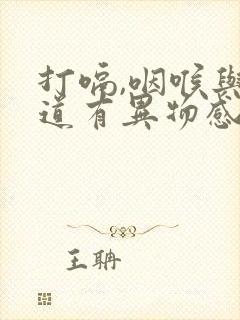 打嗝,咽喉與
道有異物感
王聃